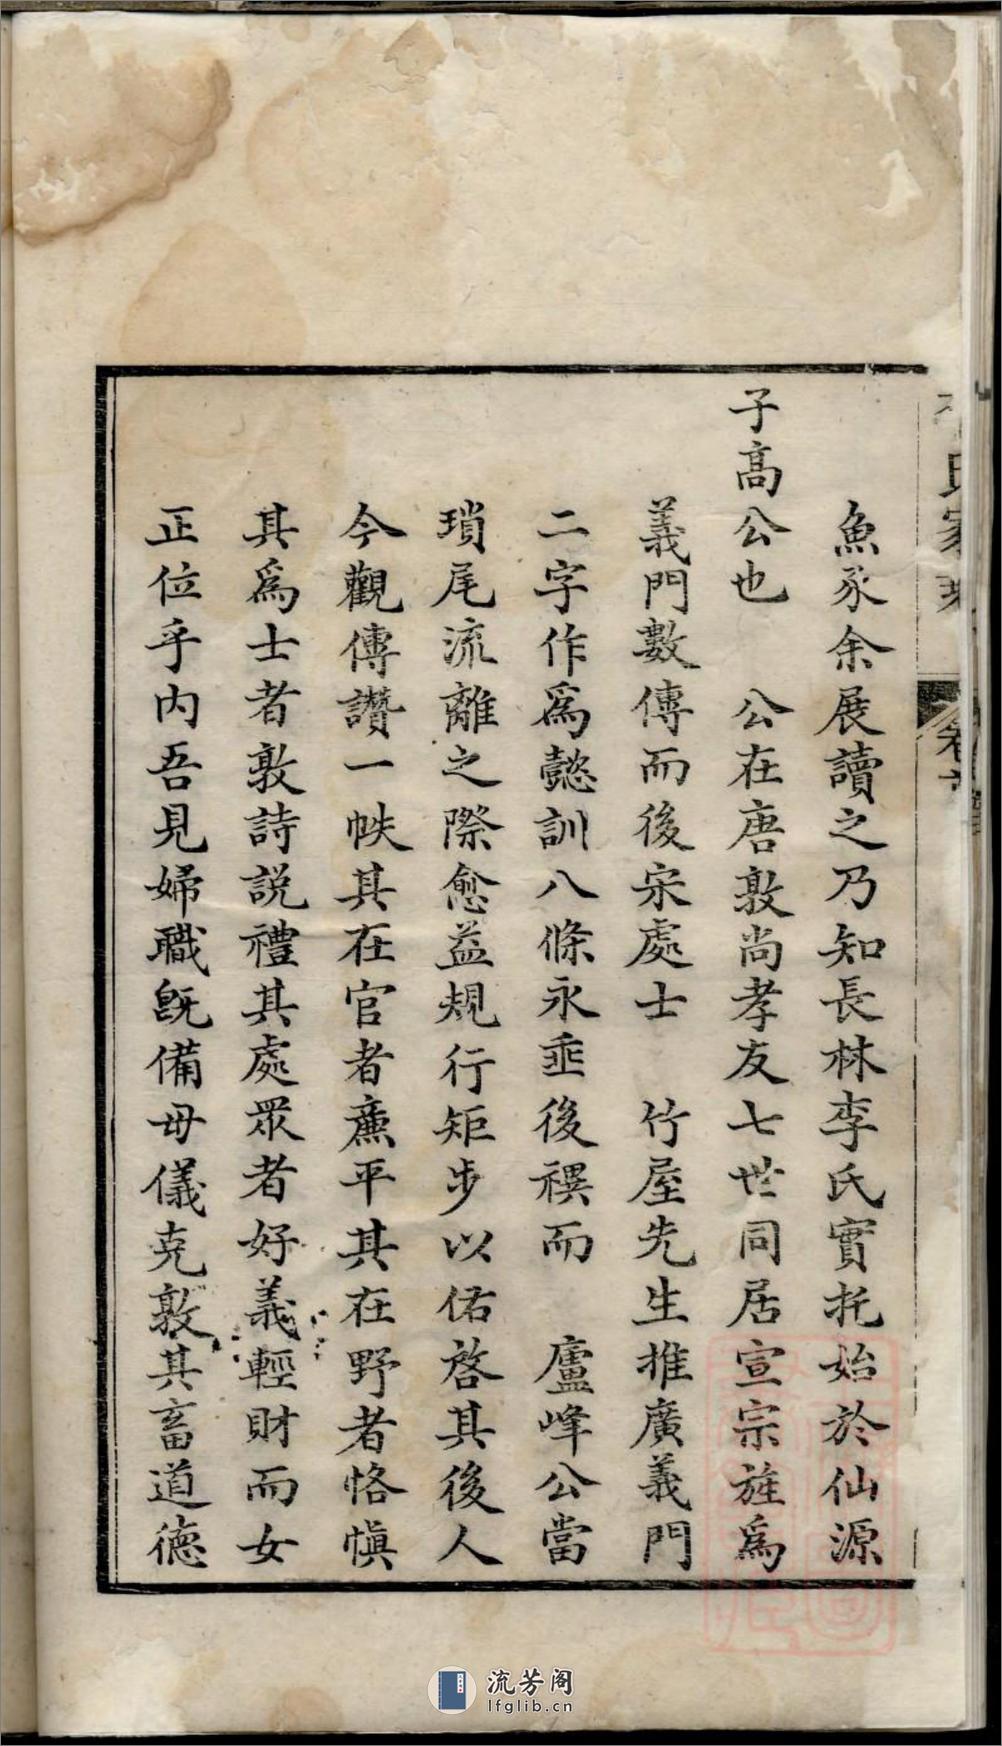 魚永余展讀之乃知長林李氏實托始於仙源
子高公也　公在唐敦尚孝友七世同居宣宗旌為
義門數傳而後宋處士　竹屋先生推廣義門
二字作爲懿訓八條永垂後禩而　廬峰公當
瑣尾流離之際愈益規行矩步以佑啓其後人
今觀傳讚一帙其在官者亷平其在野者恪愼
其爲士者敦詩説禮其處眾者好義輕財而女
正位乎内吾見婦職旣備母儀克敦其畜道德
氏家
流芳阁
lfglib.cn